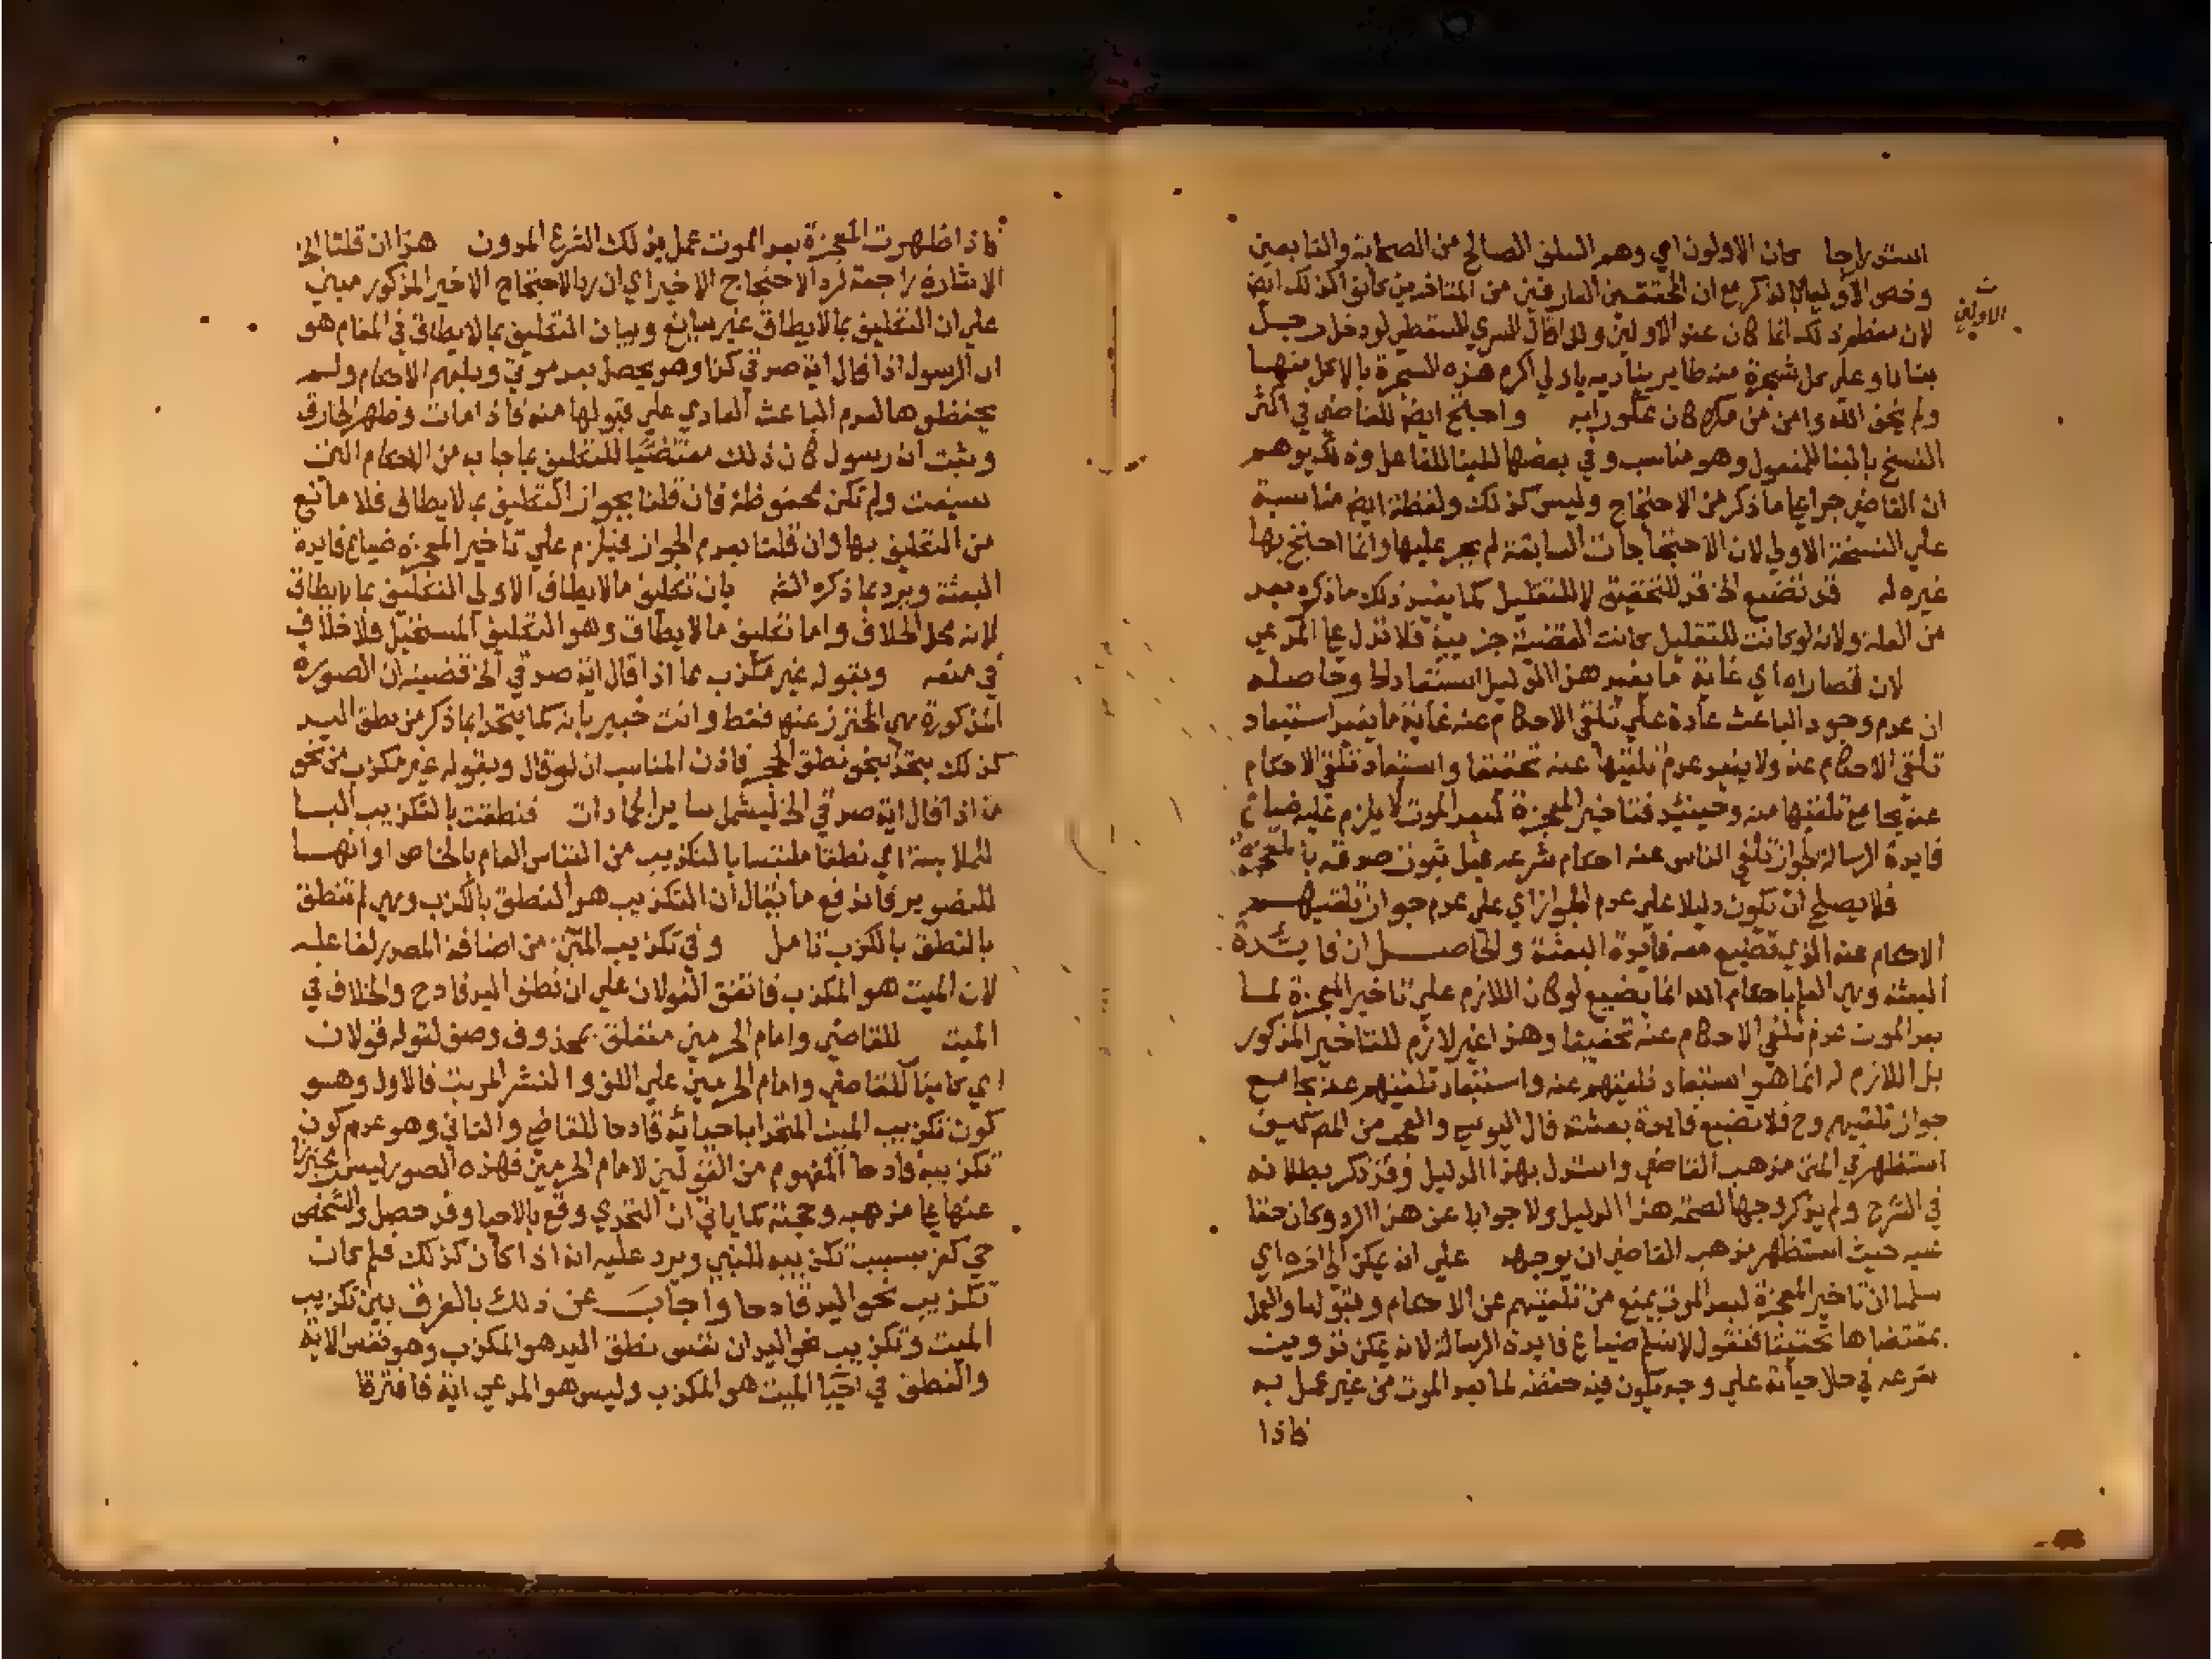 استدراجا كان الاولون اي وهم السلف الصالح من الصحابة والتابعين
وخص الاوليا بالذكر مع ان المحققين العارفين من المتاخرين كانوا كذلك ايض
الاولين
لان معظم ذلك انما كان عند الاولين ولذا قال السري السقطي لو دخل رجل
بستانا وعلي كل شجرة منه طاير يناديه يا ولي اكرم هذه الشجرة بالاكل منها
ولم يخف الله وامن من مكره كان علو رايه واحتج ايض للقاضي في اكثر
النسخ بالبنا للمفعول وهو مناسب وفي بعضها بالبنا للفاعل وذلك يوهم
ان القاضي جرا علي ما ذكر من الاحتجاج وليس كذلك ولفظة ايض مناسبة
علي النسخة الاولي لان الاحتجاجات السابقة لم يجر عليها وانما احتج بها
غيره له قد تضيع الخ قد للتحقيق لا للتقليل كما يفيد ذلك ما ذكره بعد
من العلة ولانه لو كانت للتقليل كانت القضية جزيية فلا تدل علي المدعي
لان قصاراه اي غاية ما يفيد هذا الدليل استبعاد الخ وحاصله
ان عدم وجود الباعث عادة علي تلقي الاحكام عنه غاية ما يفيد استبعاد
تلقي الاحكام عنه ولا يفيد عدم تلقيها عنه تحقيقا واستبعاد تلقي الاحكام
عنه يجامع تلقيها منه وحينئذ فتاخير المعجزة لبعد الموت لا يلزم عليه ضياع
فايدة الرسالة لجواز تلقي الناس عنه احكام شرعه قبل ثبوت صدقه بالمعجزة
فلا يصلح ان تكون دليلا علي عدم الجواز اي علي عدم جواز تلقيهم
الاحكام عنه الذي تضيع معه فايدة البعثة والحاصل ان فايدة
البعثة وهي العلم باحكام الله انما يضيع لو كان اللازم علي تاخير المعجزة لما
بعد الموت عدم تلقي الاحكام عنه تحقيقا وهذا غير لازم للتاخير المذكور
بل اللازم له انما هو استبعاد تلقيهم عنه واستبعاد تلقيهم عنه يجامع
جواز تلقيهم وح فلا تضيع فايدة بعثته قال اليوسي والعجب من المص كيف
استظهر في المتن مذهب القاضي واستدل بهذا الدليل وقد ذكر بطلانه
في الشرح ولم يذكر وجها لصحة هذا الدليل ولا جوابا عن هذا الرد وكان حقا
عليه حيث استظهر مذهب القاضي ان يوجهه علي انه يمكن الي اخره اي
سلمنا ان تاخير المعجزة لبعد الموت يمنع من تلقيهم عن الاحكام وقبولها والعمل
بمقتضاها تحقيقا فنقول لا نسلم ضياع فايدة الرسالة لانه يمكن تدوين
شرعه في حال حياته علي وجه يكون فيه حفظه لما بعد الموت من غير عمل به
فاذا
فاذا ظهرت المعجزة بعد الموت عمل بذلك الشرع المدون هذا ان قلنا الخ
الاشارة راجعة لرد الاحتجاج الاخير اي ان رد الاحتجاج الاخير المذكور مبني
علي ان التكليف بما لا يطاق غير سايغ وبيان التكليف بما لا يطاق في المقام هو
ان الرسول اذا قال اية صدقي كذا وهو يحصل بعد موتي وبلغهم الاحكام ولم
يحفظوها لعدم الباعث العادي علي قبولها منه فاذا مات وظهر الخارق
وثبت انه رسول كان ذلك مقتضيا للتكليف بما جا به من الاحكام التي
ضيعت ولم تكن محفوظة فان قلنا بجواز التكليف بما لا يطاق فلا مانع
من التكليف بها وان قلنا بعدم الجواز فيلزم علي تاخير المعجزة ضياع فايدة
البعثة ويرد بما ذكره الشه بان تكليف ما لا يطاق الاولي التكليف بما لا يطاق
لانه محل الخلاف واما تكليف ما لا يطاق وهو التكليف المستحيل فلا خلاف
في منعه وبقوله غير مكذب عما اذا قال اية صدقي الخ قضيته ان الصورة
المذكورة هي المحترز عنها فقط وانت خبير بانه كما يتحدا بما ذكر من نطق اليد
كذلك يتحدا بنحو نطق الحجر فاذن المناسب ان لو قال وبقوله غير مكذب من نحو
ما اذا قال اية صدقي الخ ليشمل ساير الجمادات فنطقت بالتكذيب البا
للملابسة اي نطقا ملتبسا بالتكذيب من التباس العام بالخاص او انها
للتصوير فاندفع ما يقال ان التكذيب هو النطق بالكذب وهي لم تنطق
بالنطق بالكذب تامل وفي تكذيب الميت من اضافة المصدر لفاعله
لان الميت هو المكذب فاتفق القولان علي ان نطق اليد قادح والخلاف في
الميت للقاضي وامام الحرمين متعلق بمحذوف وصف لقوله قولان
اي كاينان للقاضي وامام الحرمين علي اللف والنشر المرتب فالاول وهو
كون تكذيب الميت المتحدا باحيائه قادحا للقاضي والثاني وهو عدم كون
تكذيبه قادحا المفهوم من القولين لامام الحرمين فهذه الصور ليس محترزا
عنها علي مذهبه وحجته كما ياتي ان التحدي وقع بالاحيا وقد حصل والشخص
حي كفر بسبب تكذيبه للنبي ويرد عليه انه اذا كان كذلك فلم كان
تكذيب نحو اليد قادحا واجاب عن ذلك بالفرق بين تكذيب
الميت وتكذيب نحو اليد ان نفس نطق اليد هو المكذب وهو نفس الاية
والنطق في احيا الميت هو المكذب وليس هو المدعي اية فافترقا